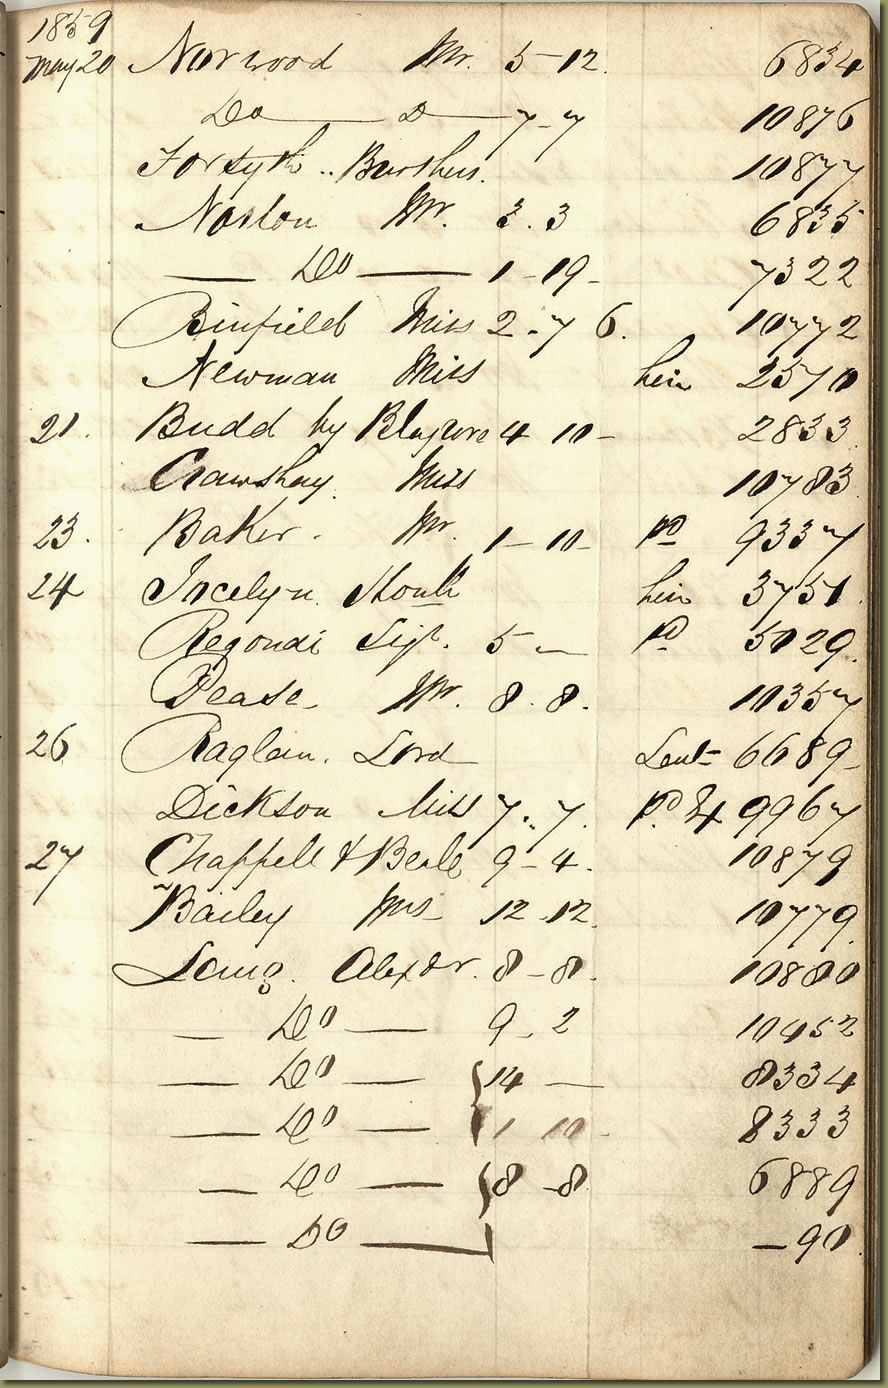 1859
May 20 Norwood Mr. 5-12. 6834
Do D 7-7 10876
Forsyth .. Brothers. 10877
Norton Mr. 3.3 6835
Do 1-19- 7322
Binfield Miss 2-7 6. 10772
Newman Miss hire 2570
21. Budd by Blagrove 4 10- 2833
Crawshay. Miss 10783
23. Baker. Mr. 1-10- pd 9337
24 Jocelyn. Honble hire 3751
Regondi Sigr. 5 - pd 5029.
Pease Mr. 8.8. 10357
26 Raglan. Lord Lent 6689-
Dickson Miss 7..7. pd 9967
27 Chappell & Beale 9-4. 10879
Bailey Mrs 12-12. 10779.
Laing. Alexdr. 8-8. 10880
Do 9-2 10452
Do 14 - 8334
Do 1 10- 8333
Do 8-8. 6889
Do -90